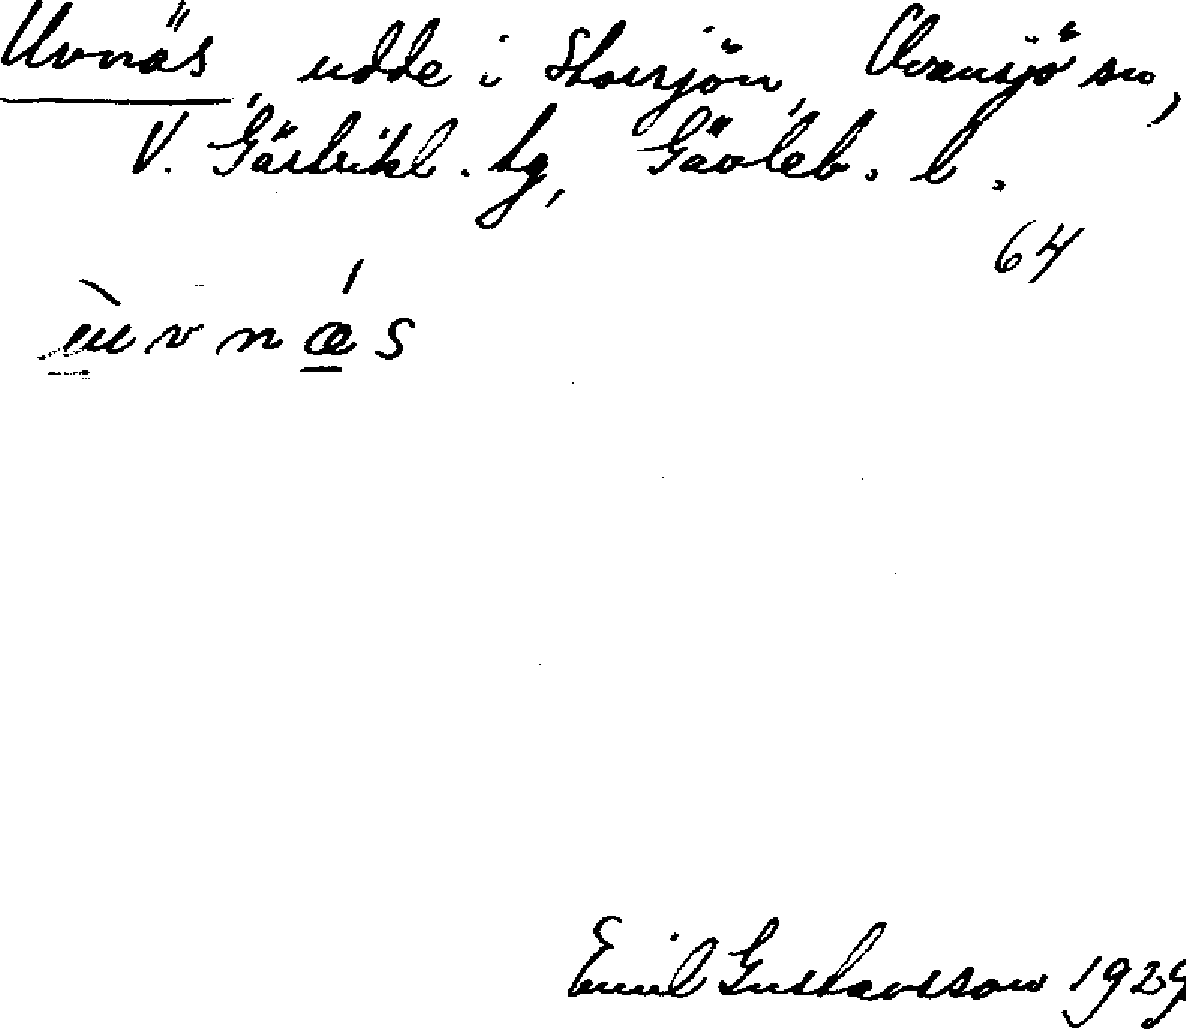 Uvnäs, udde i Storsjön, Ovansjö sn,
V. Gästrikl. tg, Gävleb. l.
64
ùvnǽs
Emil Gustavsson 1929